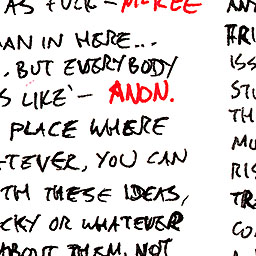 AS FUCK - MCKEE
AN IN HERE...
. BUT EVERYBODY
S LIKE - ANON.
PLACE WHERE
TEVER, YOU CAN
TH THESE IDEAS,
CKY OR WHATEVER
ABOUT THEM. NOT
AN
FRI
ISS
STU
TH
MU
RIS
TRA
CO